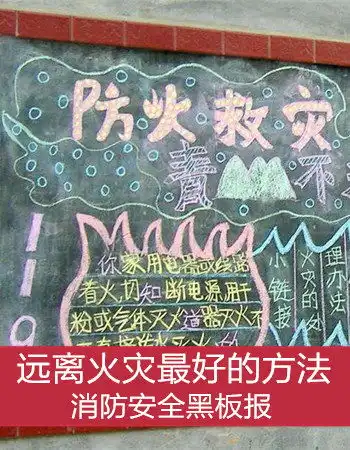 防火救灾
责 不
119
你家用电器或线路
着火,切知断电源用
粉或气体灭火道器灭火不
小链接
火灾的处
理办法
远离火灾最好的方法
消防安全黑板报